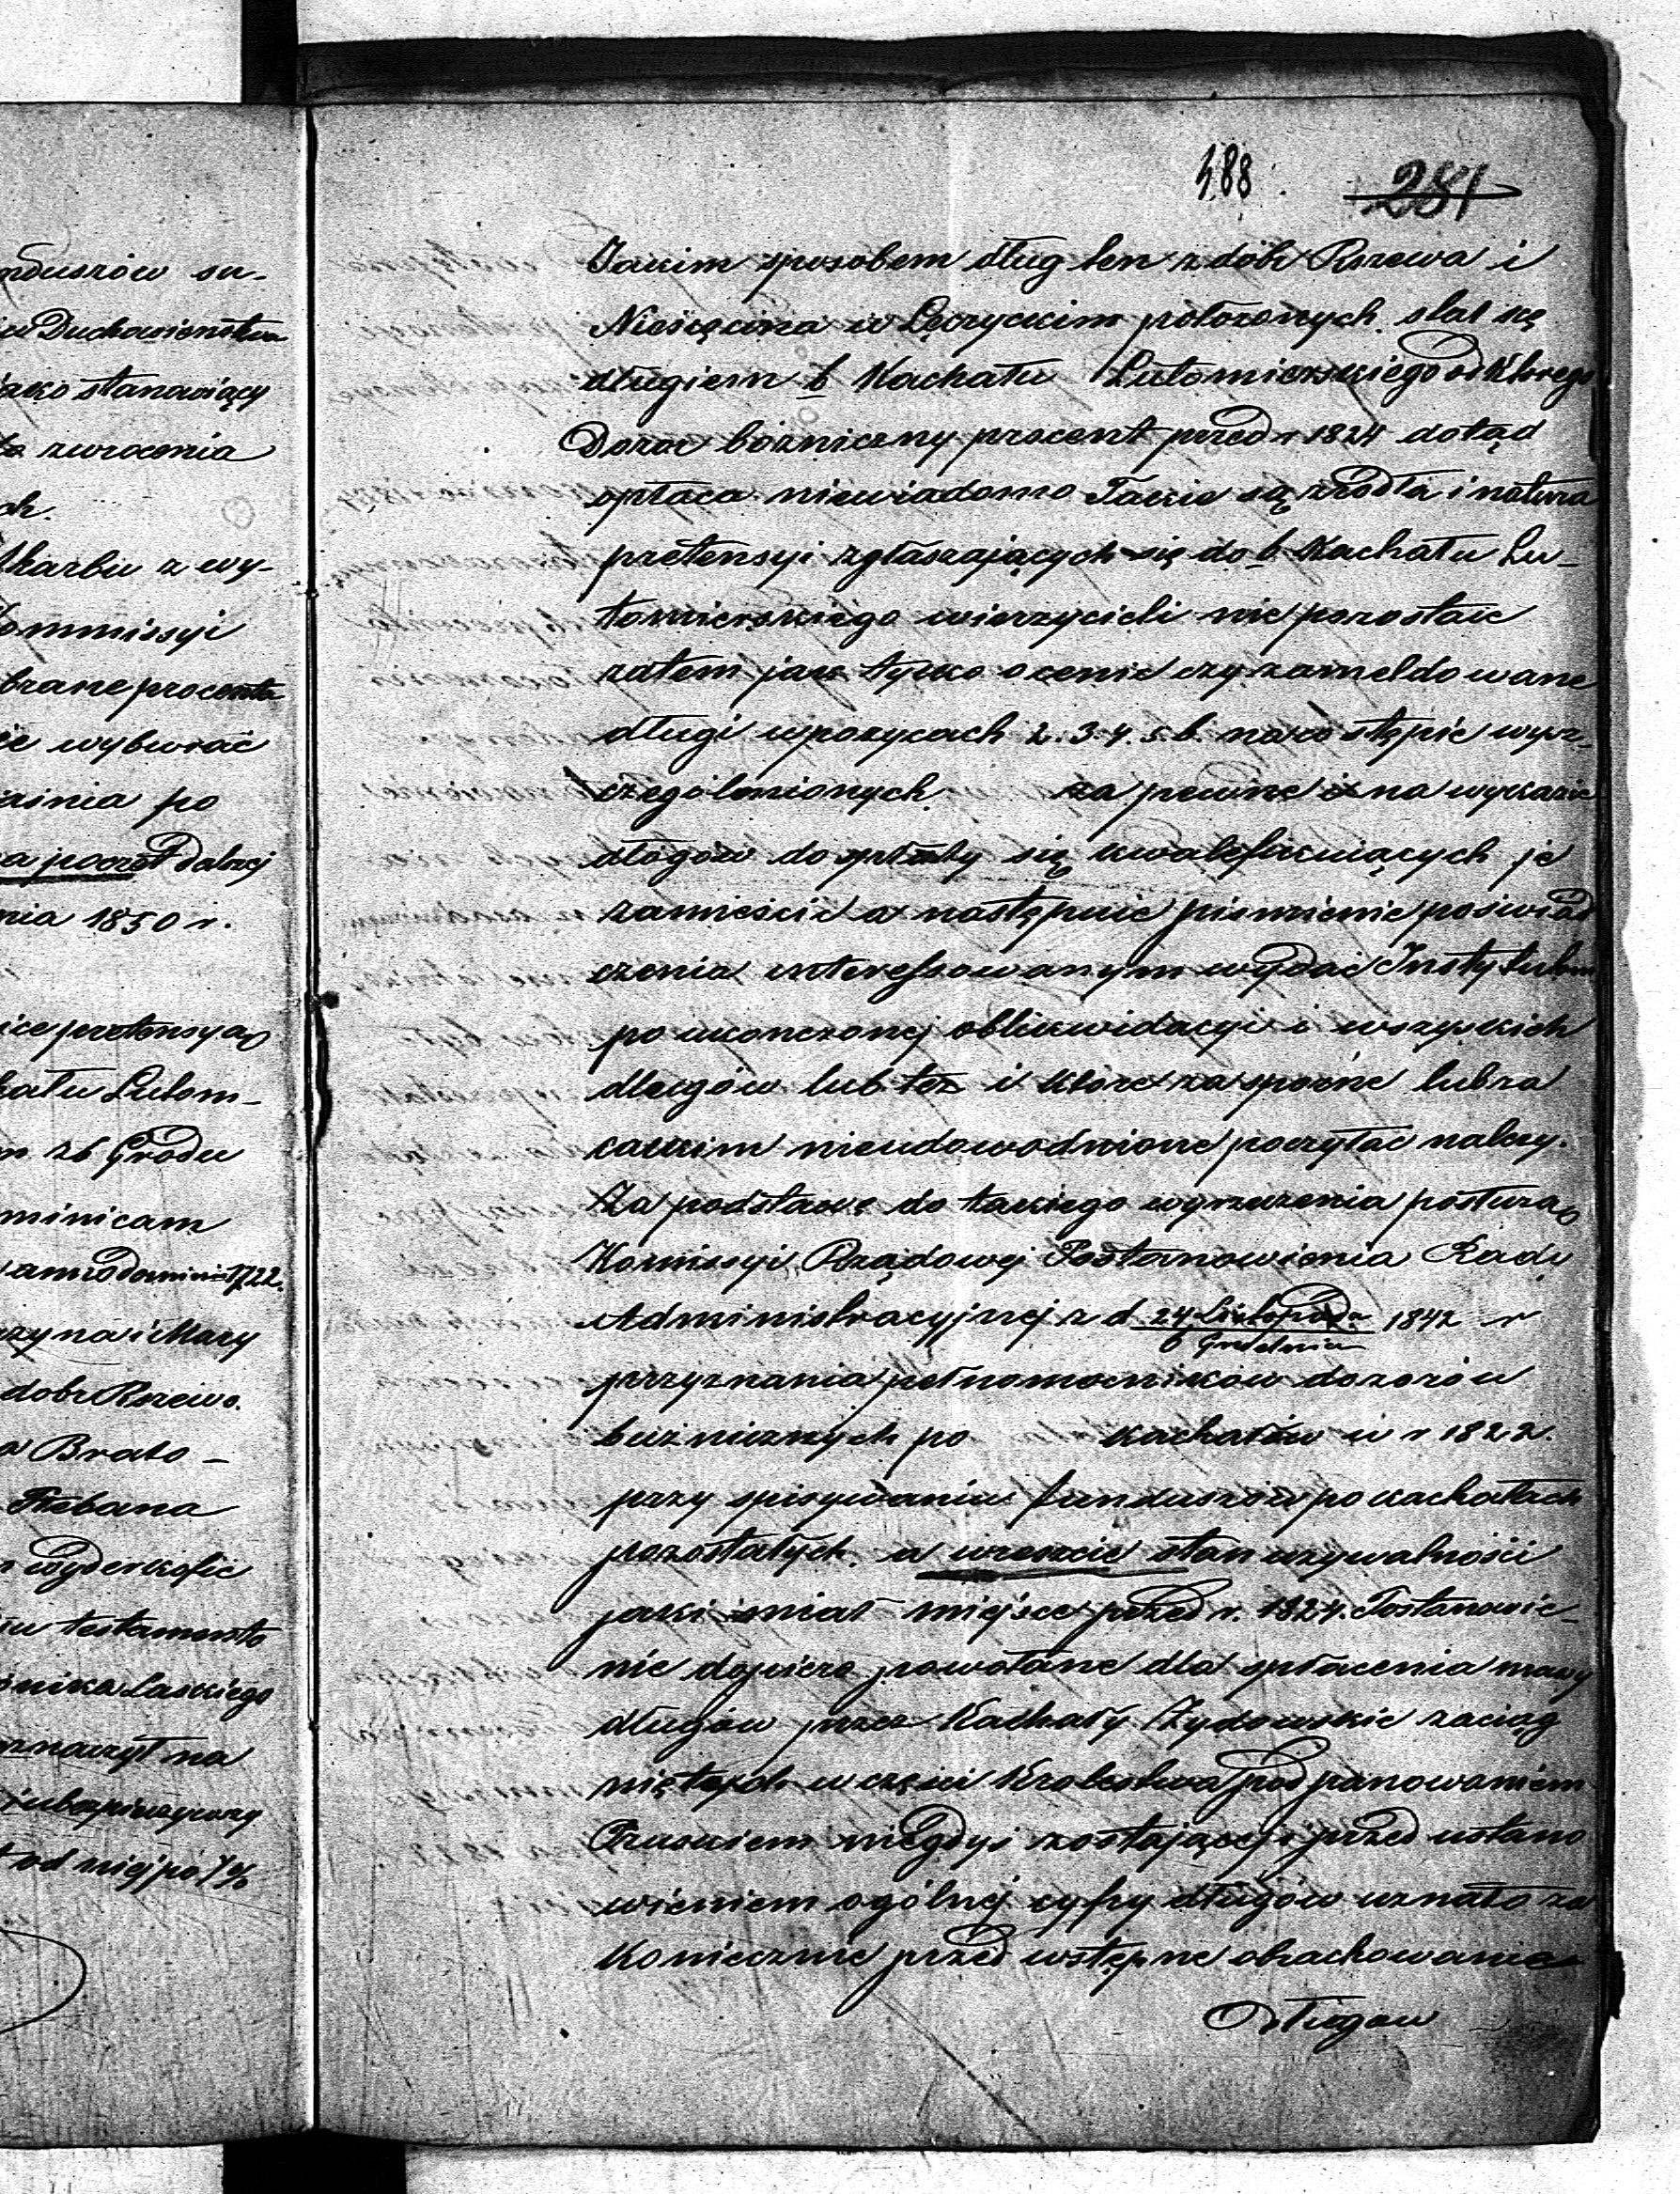 nduszów su-
Duchowieństwa
jako stanowiący
zwrocenia
ch.
Skarbu z wy-
Kommissyi
brane procenta
wybierać
po
a poczet dalszej
nia 1850 r.
pretensya
hału Lutom-
26 Grodu
minicam
anno domini 1722.
i Mary
dobr Rszewo.
a Brato-
Plebana
wyderkofie
testamento
Laskiego
znaczył na
i ubezpieczywszy
od niej po 7%
488. 281
Jakim sposobem dług ten z dóbr Rszewa i
Niesięcina w Łęczyckim położonych stał się
długiem b Kachału Lutomierskiego od którego
Dozor bóżniczny procent przed r 1824 dotąd
opłaca niewiadomo Takie są zrodła i natura
pretensyi zgłaszających się do b Kachału Lu-
tomierskiego wierzycieli nie pozostaie
zatem jak tylko ocenić czy zameldowane
długi w pozycach 2.3.4.5.6. stępie wysz-
czególnionych. za pewne i na wykazie
długów do opłaty się kwalefikuiących je
zamieścić a następnie piśmienie poświad
czenia interessowanym wydać Instytutom
po ukonczonej oblikwidacyi i wszyskich
długów lub też i które za sporne lub za
całkim nieudowodnione poczytac należy.
Za podstawę do takiego wyrzeczenia posłużą
Komissyi Rządowej Postanowienia Rady
Administracyjnej z d 24 Listopada 1842 r
6 Grudnia
przyznania pełnomocników dozorów
bużnicznych po kachałów w r 1822.
przy spisywaniu funduszów po kachałach
pozostałych. a wreszcie stan używalności
jaki miał miejsce przed r. 1824. Postanowie-
nie dopiero powołane dla spłacenia massy
długów przez Kachały Żydowskie zaciąg
niętych w części Krolestwa pod panowaniem
Pruskiem niegdyś zostającej i przed ustano
wieniem ogólnej cyfry długów uznało za
Konieczne przed wstępne obrachowanie
Długow